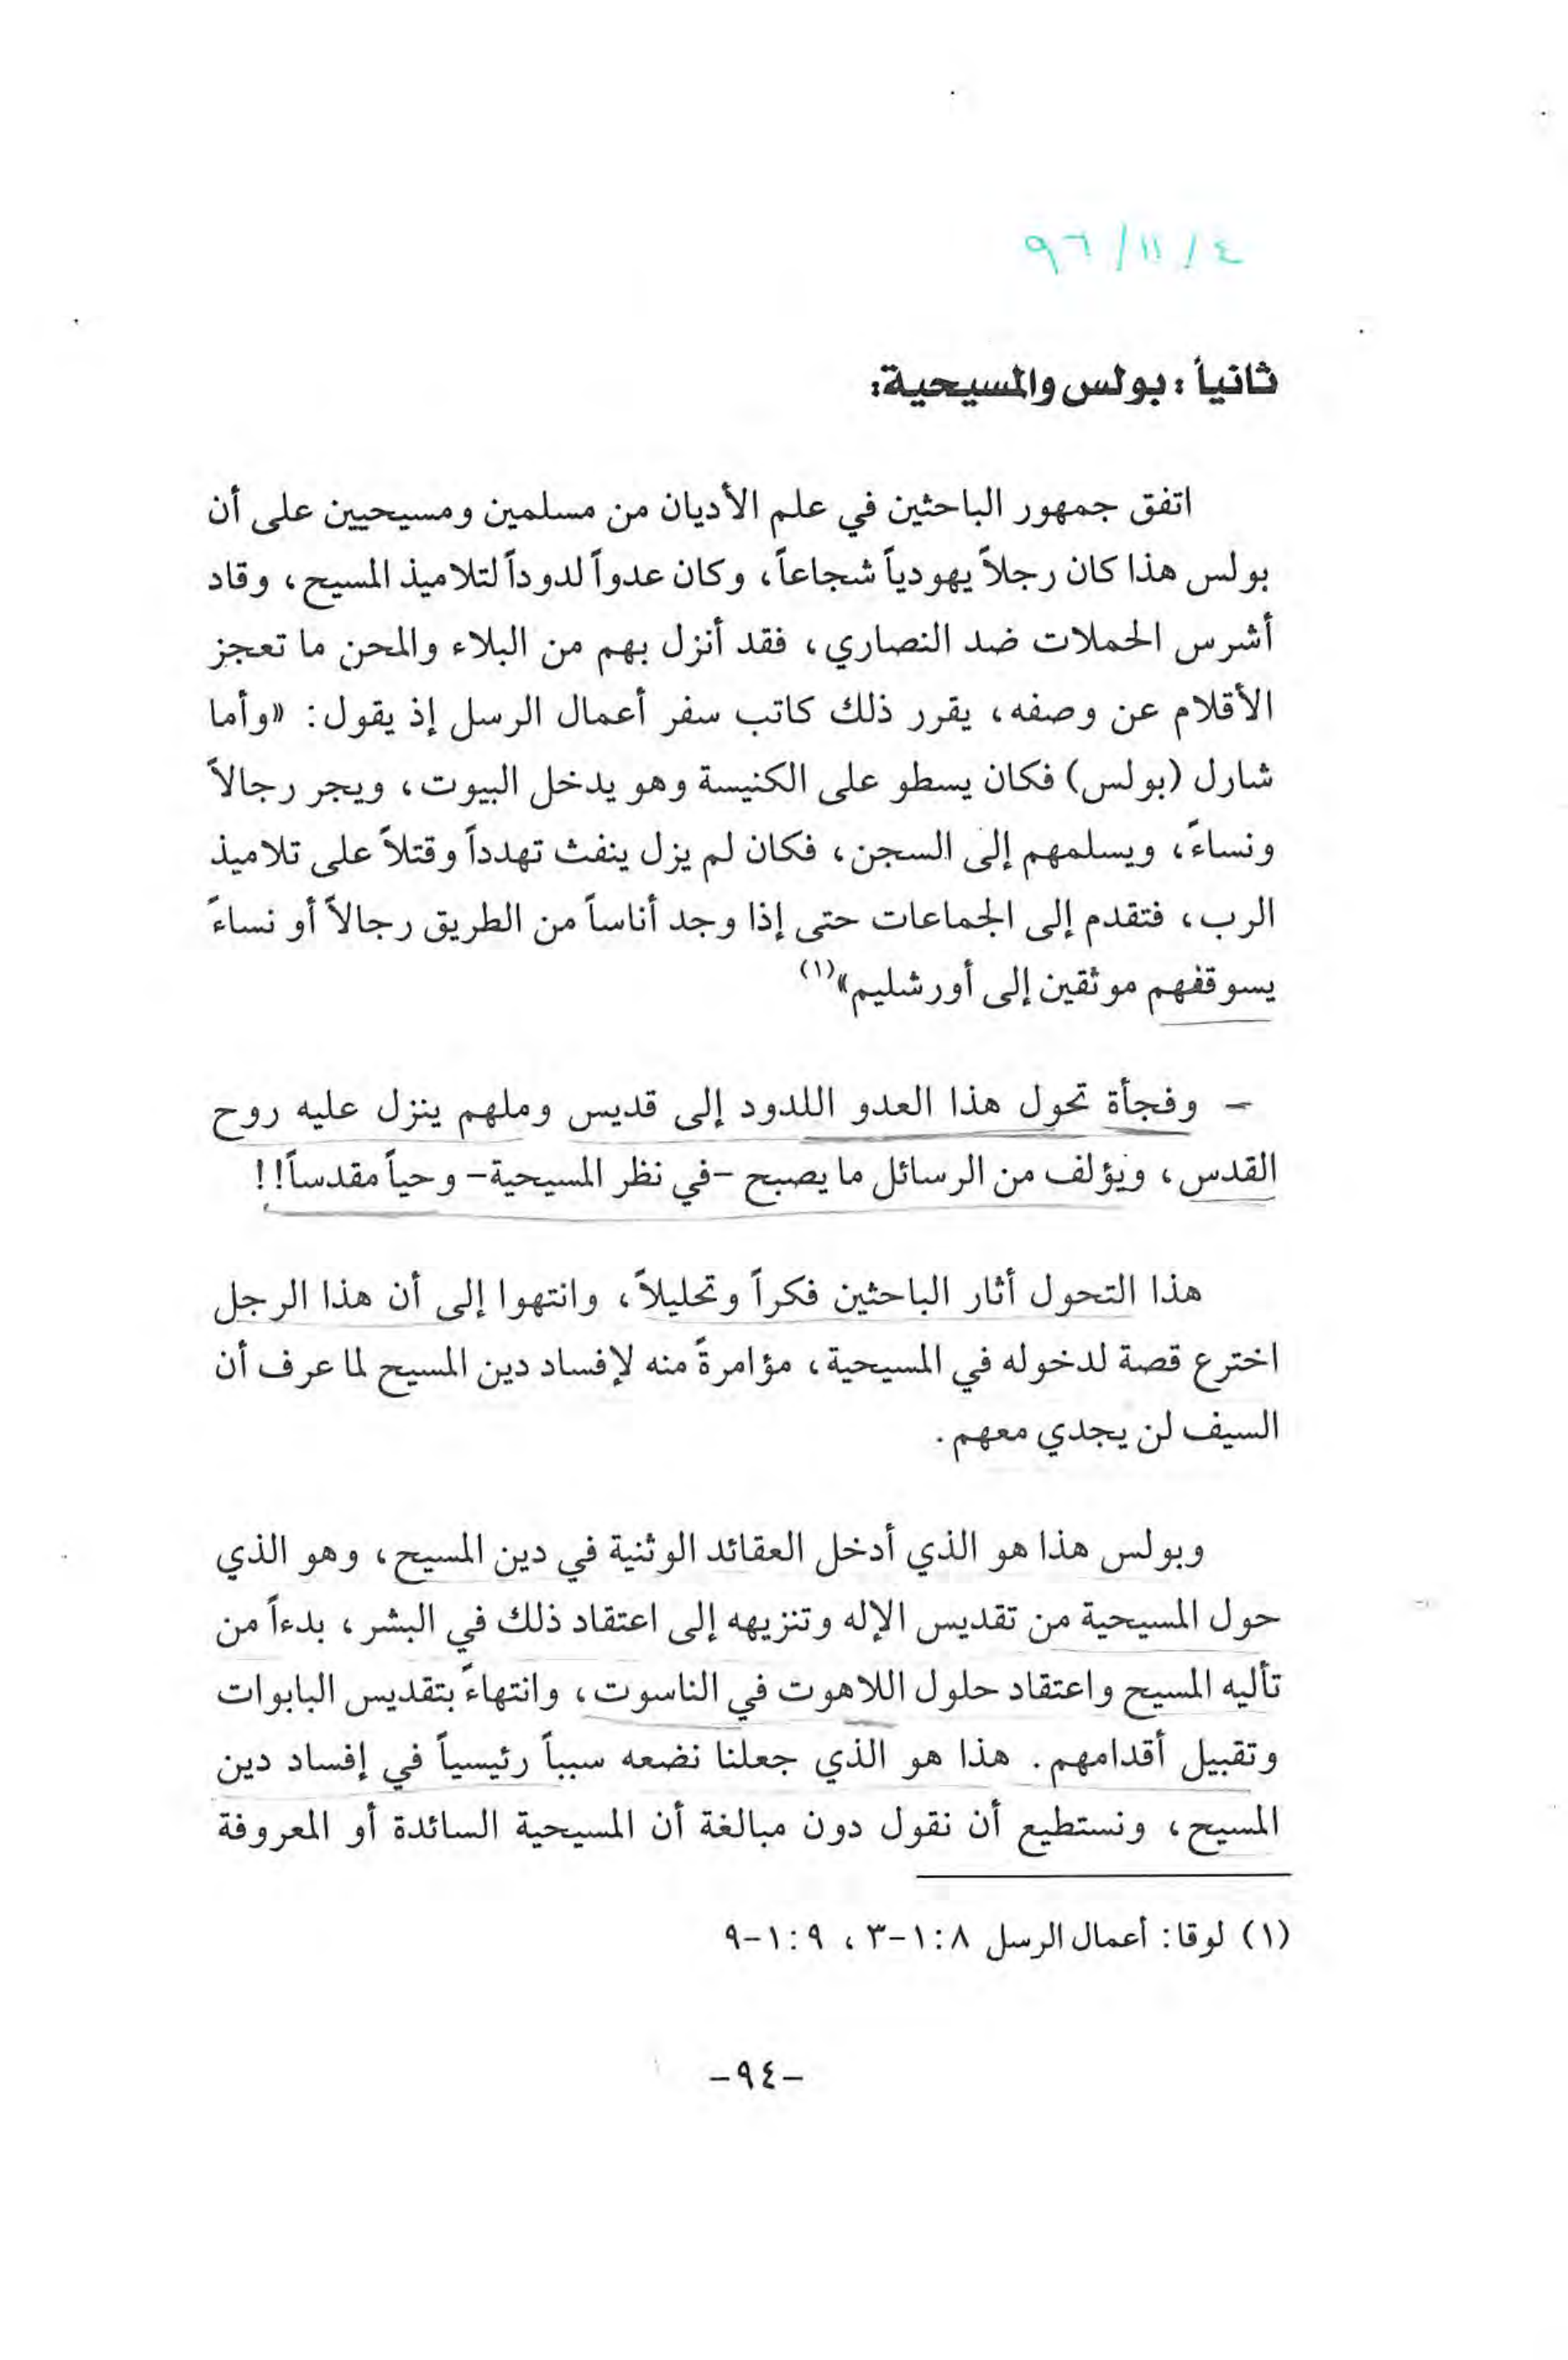 ٩٦/١١/٤
ثانياً : بولس والمسيحية:
اتفق جمهور الباحثين في علم الأديان من مسلمين ومسيحيين على أن
بولس هذا كان رجلاً يهودياً شجاعاً، وكان عدواً لدوداً لتلاميذ المسيح، وقاد
أشرس الحملات ضد النصاري، فقد أنزل بهم من البلاء والمحن ما تعجز
الأقلام عن وصفه، يقرر ذلك كاتب سفر أعمال الرسل إذ يقول: «وأما
شارل (بولس) فكان يسطو على الكنيسة وهو يدخل البيوت، ويجر رجالاً
ونساءً، ويسلمهم إلى السجن، فكان لم يزل ينفث تهدداً وقتلاً على تلاميذ
الرب، فتقدم إلى الجماعات حتى إذا وجد أناساً من الطريق رجالاً أو نساءً
يسوقفهم موثقين إلى أورشليم»(١)
- وفجأة تحول هذا العدو اللدود إلى قديس وملهم ينزل عليه روح
القدس، ويؤلف من الرسائل ما يصبح -في نظر المسيحية- وحياً مقدساً!!
هذا التحول أثار الباحثين فكراً وتحليلاً، وانتهوا إلى أن هذا الرجل
اخترع قصة لدخوله في المسيحية، مؤامرةً منه لإفساد دين المسيح لما عرف أن
السيف لن يجدي معهم.
وبولس هذا هو الذي أدخل العقائد الوثنية في دين المسيح، وهو الذي
حول المسيحية من تقديس الإله وتنزيهه إلى اعتقاد ذلك في البشر، بدءاً من
تأليه المسيح واعتقاد حلول اللاهوت في الناسوت، وانتهاءً بتقديس البابوات
وتقبيل أقدامهم. هذا هو الذي جعلنا نضعه سبباً رئيسياً في إفساد دين
المسيح، ونستطيع أن نقول دون مبالغة أن المسيحية السائدة أو المعروفة
(١) لوقا: أعمال الرسل ٨:١-٣، ٩:١-٩
-٩٤-